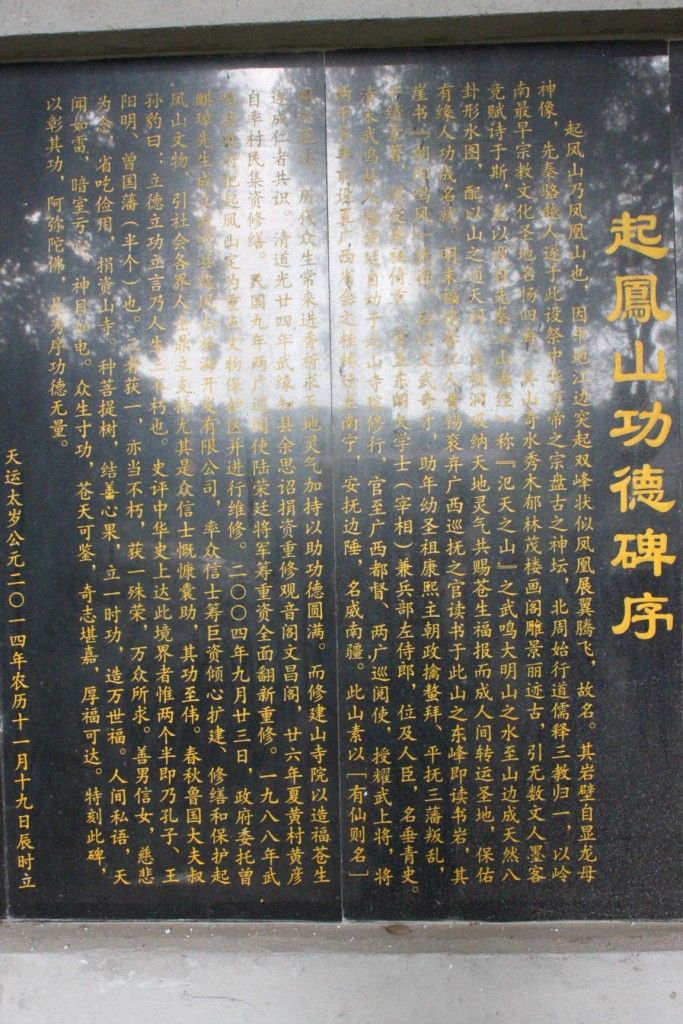 起鳳山功德碑序
起凤山乃凤凰山也，因平地江边突起双峰状似凤凰展翼腾飞，故名。其岩壁自显龙母
神像，先秦骆越人遂于此设祭中华 帝之宗盘古之神坛，北周始行道儒释三教归一，以岭
南最早宗教文化圣地名扬四海，其山奇水秀木郁林茂楼画阁雕景丽迹古，引无数文人墨客
竞赋诗于斯，尤以 先秦《山海经》称『汜天之山』之武鸣大明山之水至山边成天然八
卦形水图，配以山之通天 洞吸纳天地灵气共赐苍生福报而成人间转运圣地，保佑
有缘人功成名就。明末 人 锡衮弃广西巡抚之官读书于此山之东峰即读书岩，其
崖书 凤 文武奇才，助年幼圣祖康熙主朝政擒鳌拜、平抚三藩叛乱，
结 倚重， 东阁大学士（宰相）兼兵部左侍郎，位及人臣，名垂青史。
清末武鸣 陆荣廷自幼于此山寺院修行，官至广西都督、两广巡阅使，授耀武上将，将
广西省会之桂林 南宁，安抚边陲，名威南疆。此山素以「有仙则名」
历代众生常来进斋祈求天地灵气加持以助功德圆满。而修建山寺院以造福苍生
遂成仁者共识。清道光廿四年武缘知县余思诏捐资重修观音阁文昌阁，廿六年夏黄村黄彦
自率村民集资修缮。民国九年两广巡阅使陆荣廷将军筹重资全面翻新重修。一九八八年武
鸣县政府把起凤山定为重点文物保护区并进行维修。二〇〇四年九月廿三日，政府委托曾
麒璋先生成立 开发有限公司，率众信士筹巨资倾心扩建、修缮和保护起
凤山文物，引社会各界人士鼎立支持尤其是众信士慨慷囊助，其功至伟。春秋鲁国大夫叔
孙豹曰：立德立功立言乃人生三不朽也。史评中华史上达此境界者惟两个半即乃孔子、王
阳明、曾国藩（半个）也。三者获一，亦当不朽，获一殊荣，万众所求。善男信女，慈悲
为念，省吃俭用，捐资山寺。种菩提树，结善心果，立一时功，造万世福。人间私语，天
闻如雷，暗室亏心，神目如电。众生寸功，苍天可鉴，奇志堪嘉，厚福可达。特刻此碑，
以彰其功，阿弥陀佛，是为序功德无量。
天运太岁公元二〇一四年农历十一月十九日辰时立